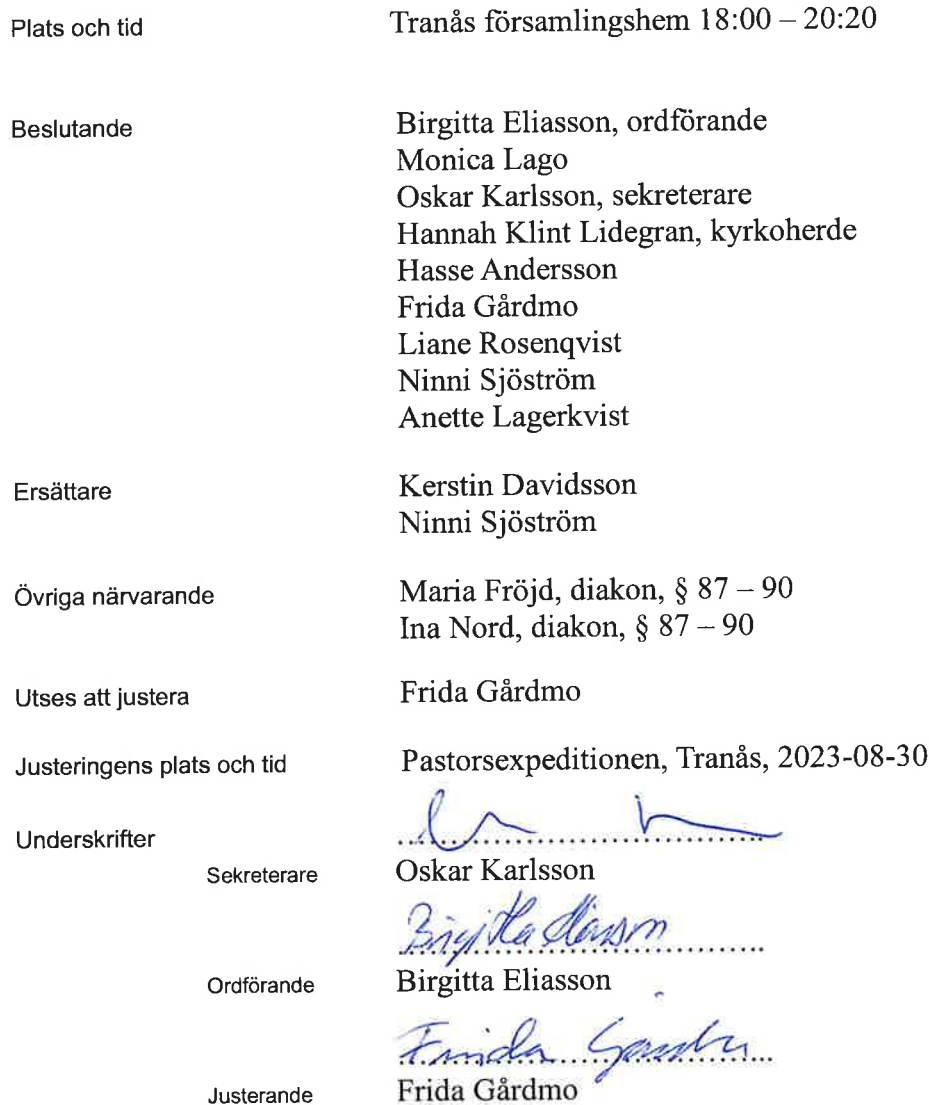 Plats och tid Tranås församlingshem 18:00 – 20:20
Beslutande Birgitta Eliasson, ordförande
Monica Lago
Oskar Karlsson, sekreterare
Hannah Klint Lidegran, kyrkoherde
Hasse Andersson
Frida Gårdmo
Liane Rosenqvist
Ninni Sjöström
Anette Lagerkvist
Ersättare Kerstin Davidsson
Ninni Sjöström
Övriga närvarande Maria Fröjd, diakon, § 87 – 90
Ina Nord, diakon, § 87 – 90
Utses att justera Frida Gårdmo
Justeringens plats och tid Pastorsexpeditionen, Tranås, 2023-08-30
Underskrifter
Sekreterare Oskar Karlsson
Birgitta Eliasson
Ordförande Birgitta Eliasson
Frida Gårdmo
Justerande Frida Gårdmo